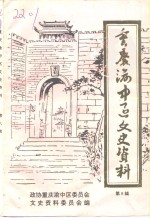 22
重庆渝中区文史资料
第8辑
政协重庆渝中区委员会
文史资料委员会编